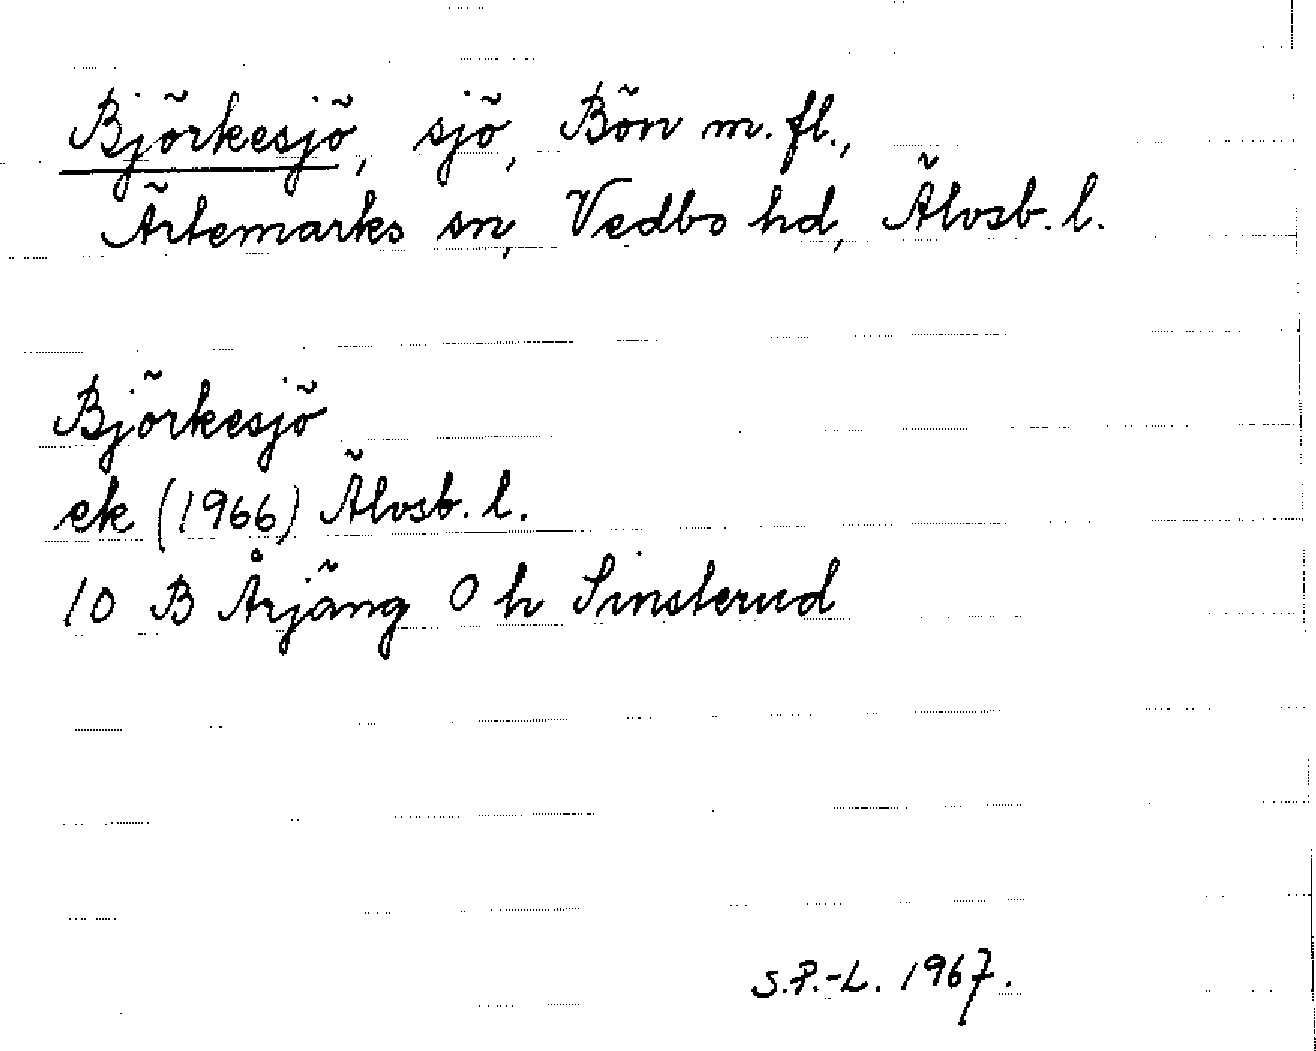 Björkesjö, sjö, Bön m. fl.,
Ärtemarks sn, Vedbo hd, Älvsb. l.
Björkesjö
ek (1966) Älvsb. l.
10 B Årjäng 0 h Sinsterud
S.P.-L. 1967.